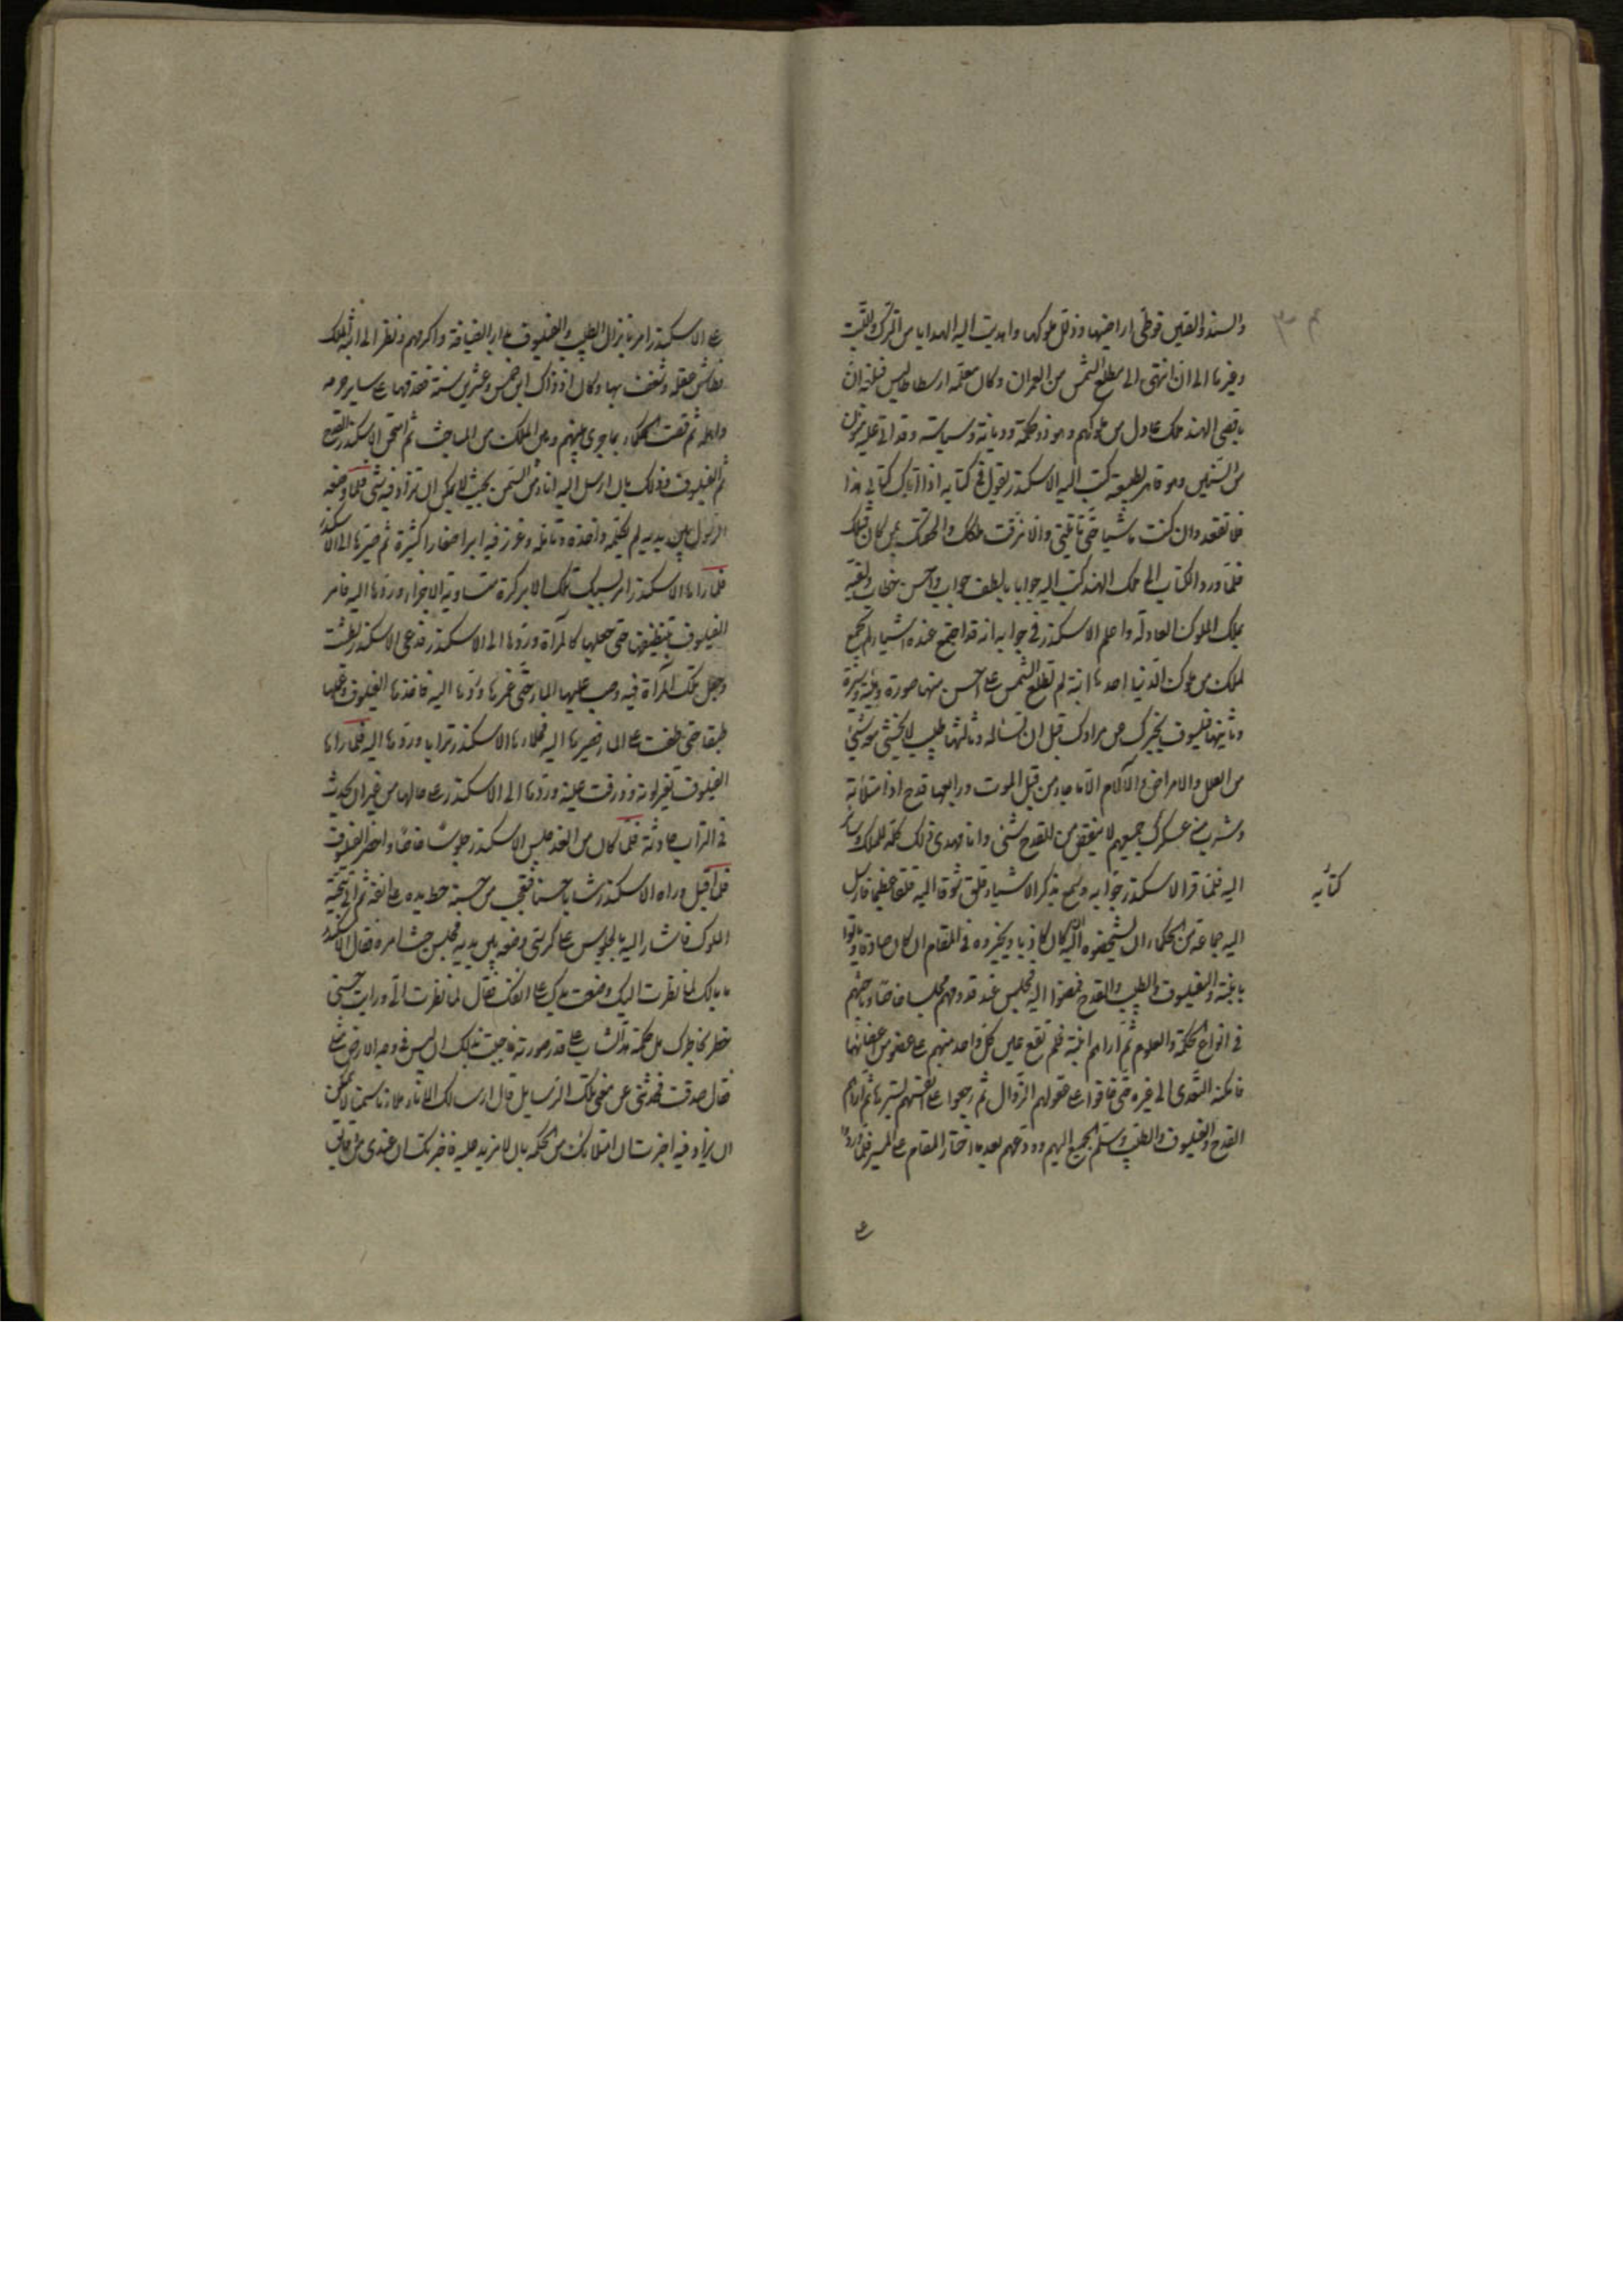 والسند والصين فوطى اراضيها وذلل ملوكها واهديت اليه الهدايا من الترك والتبت
وغيرها الى ان انتهى الى مطلع الشمس من العمران وكان معلمه ارسطاطاليس فبلغه ان
باقصى الهند ملك عادل من ملوكهم وهو ذو حكمة وديانة وسياسة وقد اتى عليه
من السنين وهو قاهر لطبيعته كتب اليه الاسكندر يقول فى كتابه اذا اتاك كتابى هذا
فلا تقعد وان كنت ماشيا حتى تاتينى والا مزقت ملكك والحقتك بمن كان قبلك
فلما ورد الكتاب الى ملك الهند كتب اليه جوابا بالطف جواب واحسن خطاب ولقبه
بملك الملوك العادلة واعلم الاسكندر فى جوابه انه قد اجتمع عنده اشياء لم تجتمع
لملك من ملوك الدنيا احدها ابنة لم تطلع الشمس على احسن منها صورة
وثانيها فيلسوف يخبرك عن مرادك قبل ان تساله وثالثها طبيب لا يخشى معه شيئ
من العلل والامراض والآلام الا ما جاء من قبل الموت ورابعها قدح اذا امتلاته
وشرب منه عسكرك جميعهم لا ينقص من القدح شئ وانا مهدى ذلك كله للملك وسائر
اليه فلما قرا الاسكندر جوابه وسمع بذكر الاشياء قلق شوقا اليه قلقا عظيما فارسل
كتابه
اليه جماعة من الحكماء ان يشخصوه اليه ان كان كاذبا ويخيروه فى المقام ان كان صادقا وياتوا
بابنته والفيلسوف والطبيب والقدح فمضوا اليه فجلس عند قدومهم مجلسا خاصا وباحثهم
فى انواع الحكمة والعلوم ثم اراهم ابنته فلم تقع عين كل واحد منهم على عضو من اعضائها
فامكنه التعدى الى غيره حتى خافوا على عقولهم الزوال ثم رجعوا على انفسهم لسترها ثم اراهم
القدح والفيلسوف والطبيب وسلم الجميع اليهم وودعهم بعد ما اختار المقام على المسير فلما وردوا
على الاسكندر امر بانزال الطبيب والفيلسوف بدار الضيافة واكرمهم ونظر الى ابنة الملك
فطاش عقله وشغف بها وكان اذ ذاك ابن خمس وعشرين سنة فقدمها على ساير حرمه
واهله ثم قصت الحكماء بما جرى بينهم وبين الملك من المباحث ثم امتحن الاسكندر القدح
ثم الفيلسوف وذلك بان ارسل اليه اناء من السمن بحيث لا يمكن ان تزاد فيه شئ فلما وضعه
الرسول بين يديه لم يكلمه واخذه وتامله وغرز فيه ابرا صغارا كثيرة ثم صيرها الى الاسكندر
فلما راها الاسكندر امر بسبك تلك الابر كرة متساوية الاجزاء وردها اليه فامر
الفيلسوف بتنظيفها حتى جعلها كالمرآة وردها الى الاسكندر فدعى الاسكندر بطشت
وجعل تلك المرآة فيه وصب عليها الماء حتى غمرها وردها اليه فاخذها الفيلسوف وعملها
طبقا حتى طفت على الماء فصيرها اليه فملاءها الاسكندر ترابا وردها اليه فلما راها
الفيلسوف تغير لونه وذرفت عينه وردها الى الاسكندر على حالها من غير ان يحدث
فى التراب حادثة فلما كان من الغد جلس الاسكندر جلوسا خاصا واحضر الفيلسوف
فلما اقبل وراه الاسكندر شابا حسنا فتعجب من حسنه حط يده على انفه ثم اتى بتحية
الملوك فاشار اليه بالجلوس على كرسى وضعه بين يديه فجلس حيث امره فقال الاسكندر
ما بالك لما نظرت اليك وضعت يدك على انفك فقال لما نظرت الى ورايت حسنى
خطر بخاطرك هل حكمة هذا الشاب على قدر صورته فاجبت بذلك ان ليس فى وجه الارض مثلى
فقال صدقت فحدثنى عن معنى تلك الرسايل قال ارسالك الاناء ملاءنا سمنا لا يمكن
ان يزاد فيه اخبرت ان امتلائك من الحكمة بان لا مزيد عليه فاخبرتك ان عندى من دقايق